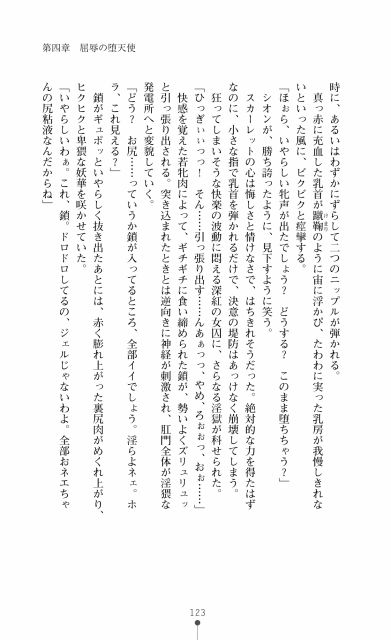 第四章　屈辱の堕天使
時に、あるいはわずかにずらして二つのニップルが弾かれる。
真っ赤に充血した乳首が蹴鞠のように宙に浮かび、たわわに実った乳房が我慢しきれな
いといった風に、ビクビクと痙攣する。
「ほぉら、いやらしい牝声が出たでしょう？　どうする？　このまま堕ちちゃう？」
シオンが、勝ち誇ったように、見下すように笑う。
スカーレットの心は悔しさと情けなさで、はちきれそうだった。絶対的な力を得たはず
なのに、小さな指で乳首を弾かれるだけで、決意の堤防はあっけなく崩壊してしまう。
狂ってしまいそうな快楽の波動に悶える深紅の女囚に、さらなる淫獄が科せられた。
「ひっぎぃぃっっ！　そん……引っ張り出す……んあぁっっ、やめ、ろぉぉっ、おぉ……」
快感を覚えた若牝肉によって、ギチギチに食い締められた鎖が、勢いよくズリュリュッ
と引っ張り出される。突き込まれたときとは逆向きに神経が刺激され、肛門全体が淫猥な
発電所へと変貌していく。
「どう？　お尻……っていうか鎖が入ってるところ、全部イイでしょう。淫らよネェ。ホ
ラ、これ見える？」
鎖がギュポッといやらしく抜き出たあとには、赤く膨れ上がった裏尻肉がめくれ上がり、
ヒクヒクと卑猥な妖華を咲かせていた。
「いやらしいわぁ。これ、鎖。ドロドロしてるの、ジェルじゃないわよ。全部おネエちゃ
んの尻粘液なんだからね」
123